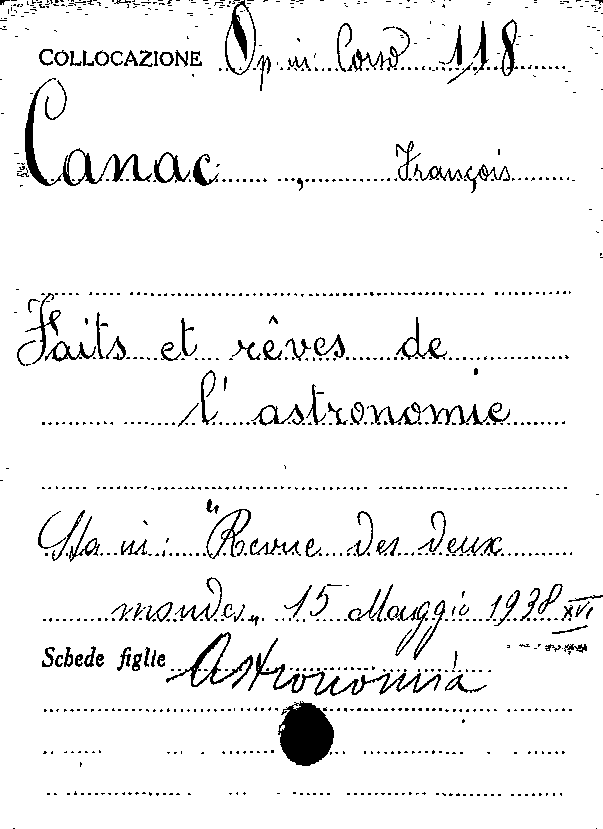 COLLOCAZIONE Op. in Corso 118
Canac, François
Faits et rêves de
l'astronomie
Sta in: "Revue des deux
mondes„ 15 Maggio 1938 XVI
Schede figlie Astronomia